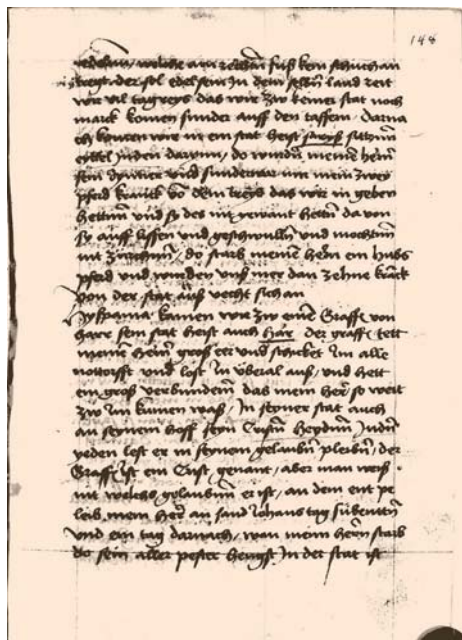 148
edelman, welche am rechtn fuß kein schuch an
tregt der sol edel sein In dem selbn land reit
wir vil tagreys das wir zw keiner stat noch
marck komen sunder auff den
ch komen wir in ein stat heist
eyttel Juden darynn, do wurdn meine hern
sein und sunderwar mir mein zwey
pferd kranck vo dem das wir in geben
hettnn und sy des nit gewant hettn da von
sy auff lissen und geschwulln und mochtnn
nit, do starb meine hern ein hubs
pferd und wurden unß mer dan zehne kranck
von der stat auß vecht sich an
Hyspania kamen wir zw eine Graffe von
harre sein stat heist auch hare der graff tett
meine hern groß eer und schicket Im alle
nottorfft und lost In uberal auß, und hett
ein groß verbundern das mein her so weit
zw im kumen waß, In seyner stat auch
an seynem hoff seyn Cristn heydnn Judn
yeden lest er in seynem gelaubn pleibn, der
Graffe ist ein Crist genant, aber man weiß
nit welchs gelaubnn er ist, an dem ent pe
leib mein her an sand Johans tag
und ein tag darnach, wan mein hern starb
do sein aller pester hengst In der stat ist